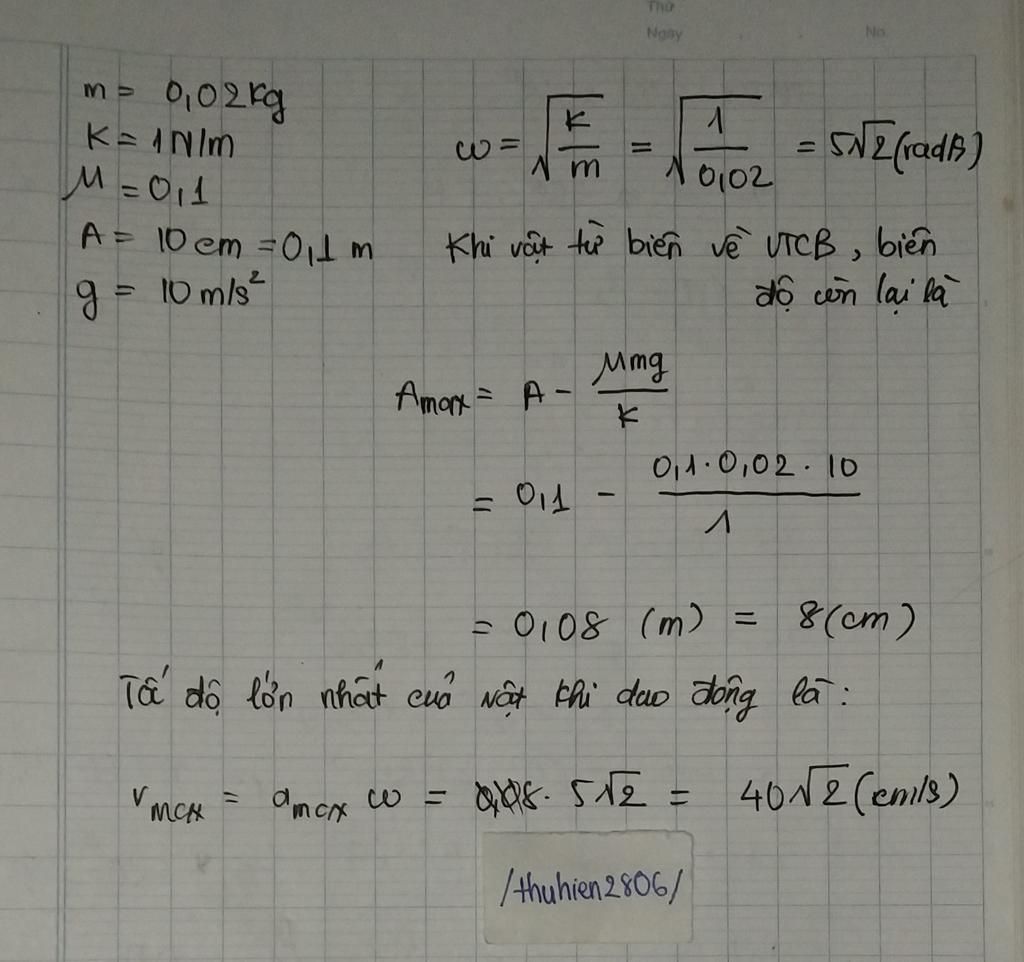 Thứ
Ngày No.
m = 0,02kg
K = 1N/m
μ = 0,1
A = 10 cm = 0,1 m
g = 10 m/s²
ω = √(k/m) = √(1/0,02) = 5√2 (rad/s)
Khi vật từ biên về VTCB, biên
độ còn lại là
Amax = A - μmg/K
= 0,1 - 0,1.0,02.10/1
= 0,08 (m) = 8 (cm)
Tốc độ lớn nhất của vật khi dao động là:
vmax = amax ω = 8. 5√2 = 40√2 (cm/s)
/thuhien2806/